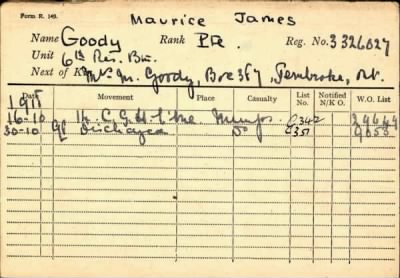 Form R. 149.
Maurice James
Name Goody Rank Pte. Reg. No. 3326027
Unit 6th Res. Bn.
Next of K Mrs M. Goody, Box 367, Pembroke, Ont.
Date Movement Place Casualty List No. Notified N/K O. W.O. List
1918
16-10 C.G.H. Mumps C342
30-10 Discharged Do C351